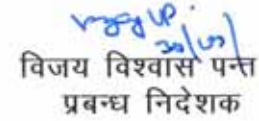 विजय विश्वास पन्त
प्रबन्ध निदेशक